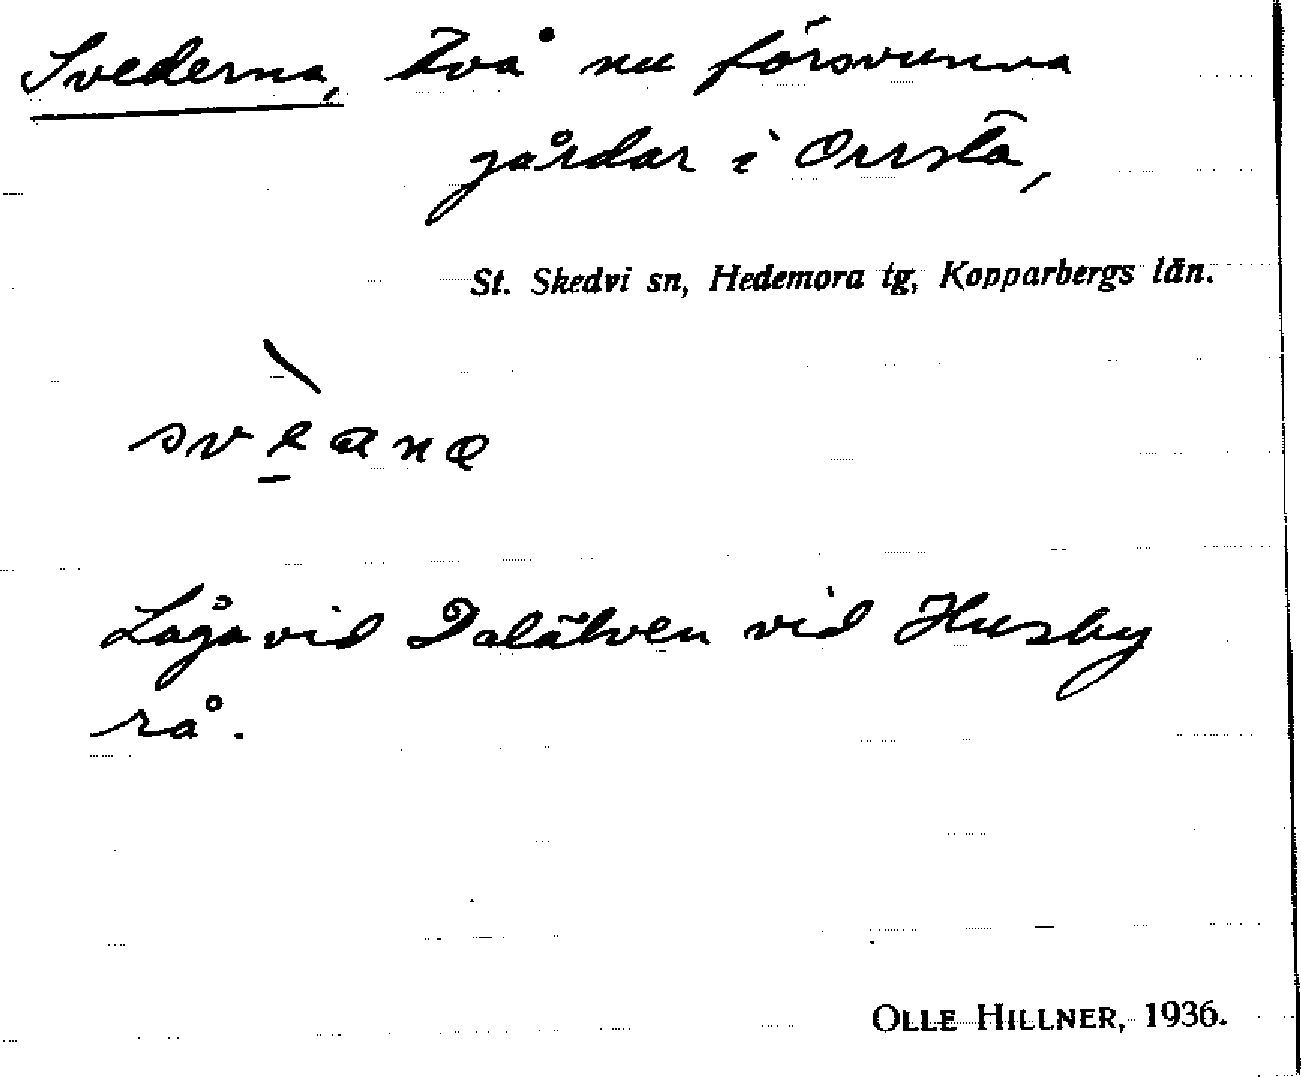 Svederna, två nu försvunna
gårdar i Orrsta,
St. Skedvi sn, Hedemora tg, Kopparbergs län.
Låga vid Dalälven vid Husby
rå.
OLLE HILLNER, 1936.